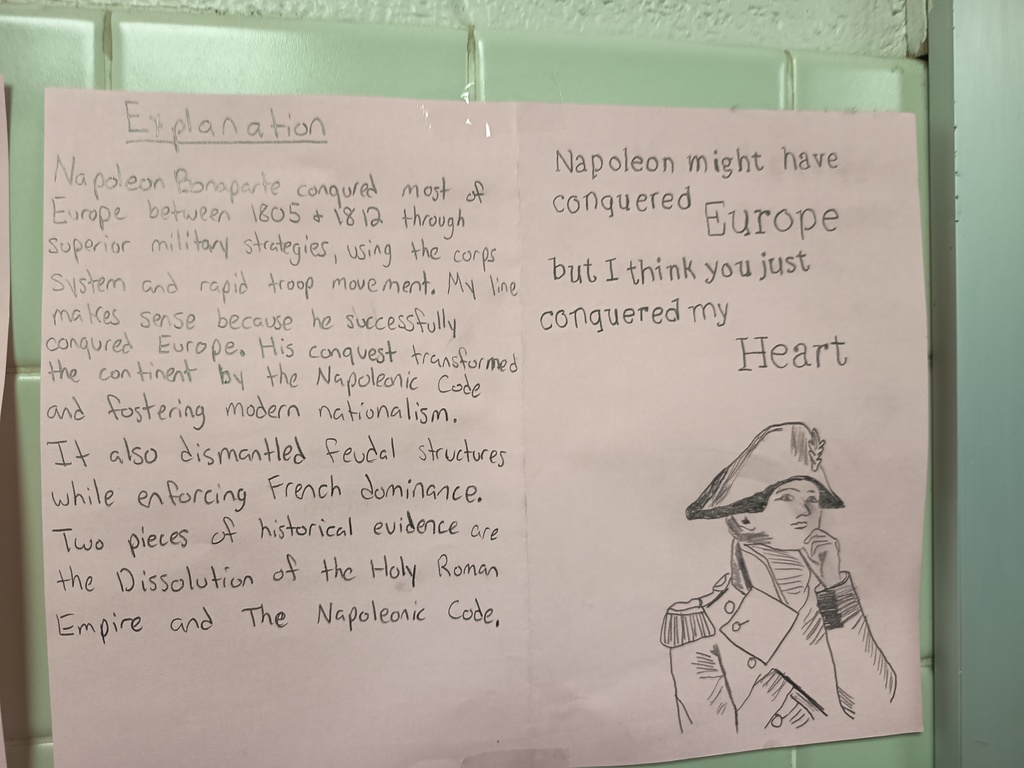 Explanation
Napoleon Bonaparte conqured most of
Europe between 1805 & 1812 through
superior military strategies, using the corps
system and rapid troop movement. My line
makes sense because he successfully
conqured Europe. His conquest transformed
the continent by the Napoleonic Code
and fostering modern nationalism.
It also dismantled feudal structures
while enforcing French dominance.
Two pieces of historical evidence are
the Dissolution of the Holy Roman
Empire and The Napoleonic Code.
Napoleon might have
conquered Europe
but I think you just
conquered my
Heart